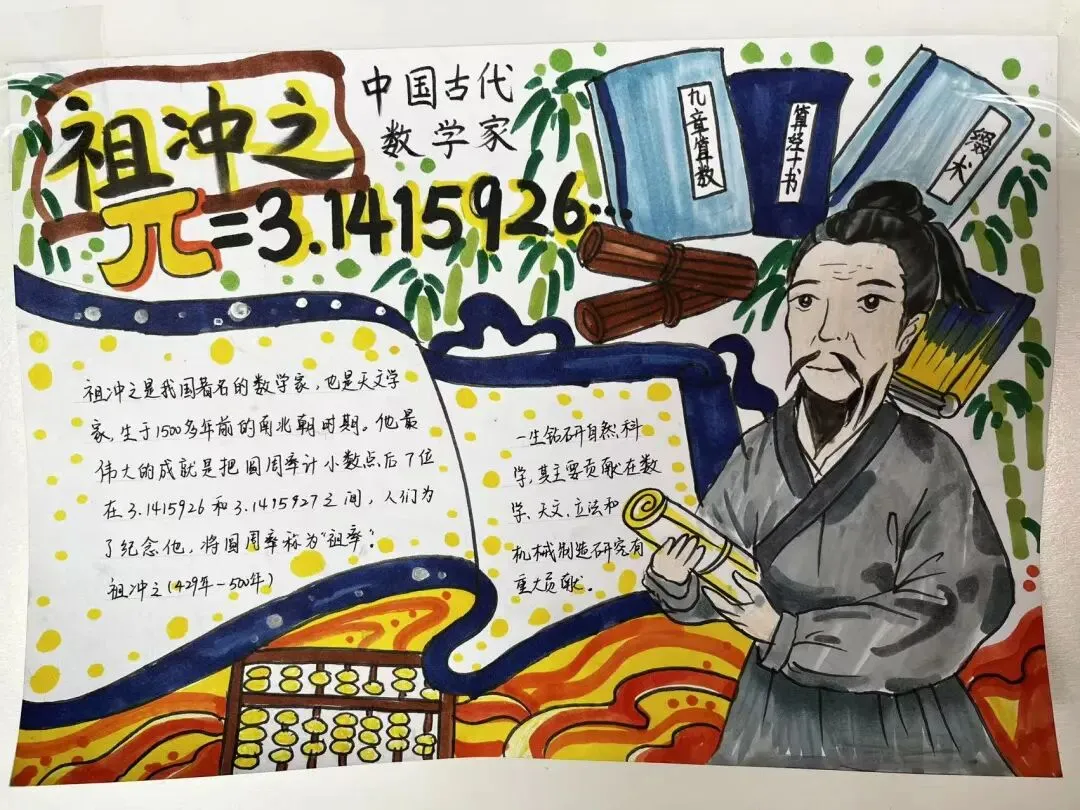 祖冲之
中国古代
数学家
π=3.1415926…
九章算数
算经十书
缀术
祖冲之是我国著名的数学家,也是天文学
家,生于1500多年前的南北朝时期。他最
伟大的成就是把圆周率计小数点后7位
在3.1415926和3.1415927之间,人们为
了纪念他,将圆周率称为“祖率”。
祖冲之(429年-500年)
一生钻研自然科
学,其主要贡献在数
学、天文、立法和
机械制造研究有
重大贡献。